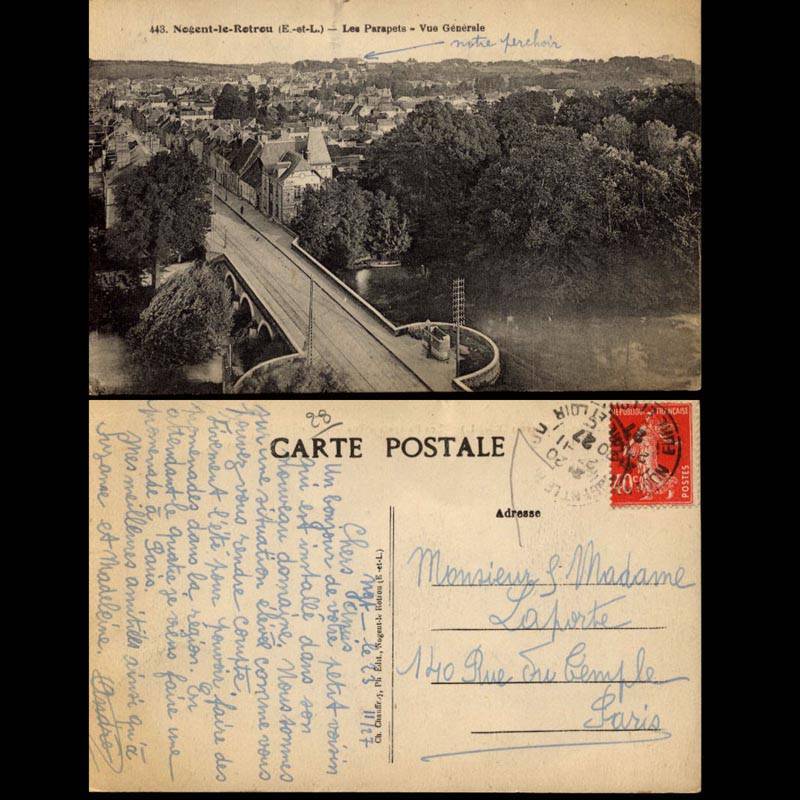 443. Nogent-le-Rotrou (E.-et-L.) — Les Parapets - Vue Générale
notre perchoir
CARTE POSTALE
Adresse
REPUBLIQUE FRANÇAISE
40c
POSTES
Ch. Chauffray, Ph. Edit., Nogent-le-Rotrou (E.-et-L.)
Monsieur & Madame
Laporte
140 Rue du Temple
Paris
le 23 11/27
Chers Amis
Un bonjour de votre petit voisin
qui est installé dans son
nouveau domaine. Nous sommes
sur une situation élevé comme vous
pouvez vous rendre compte.
l'été pour pouvoir faire des
promenades dans la région. En
attendant le quatre je viens faire une
promenade à Paris.
Mes meilleures amitiés ainsi qu'à
Suzanne et Madeleine. André